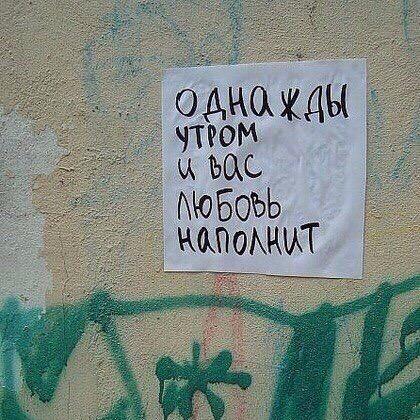 ОДНАЖДЫ
УТРОМ
И ВАС
ЛЮБОВЬ
НАПОЛНИТ